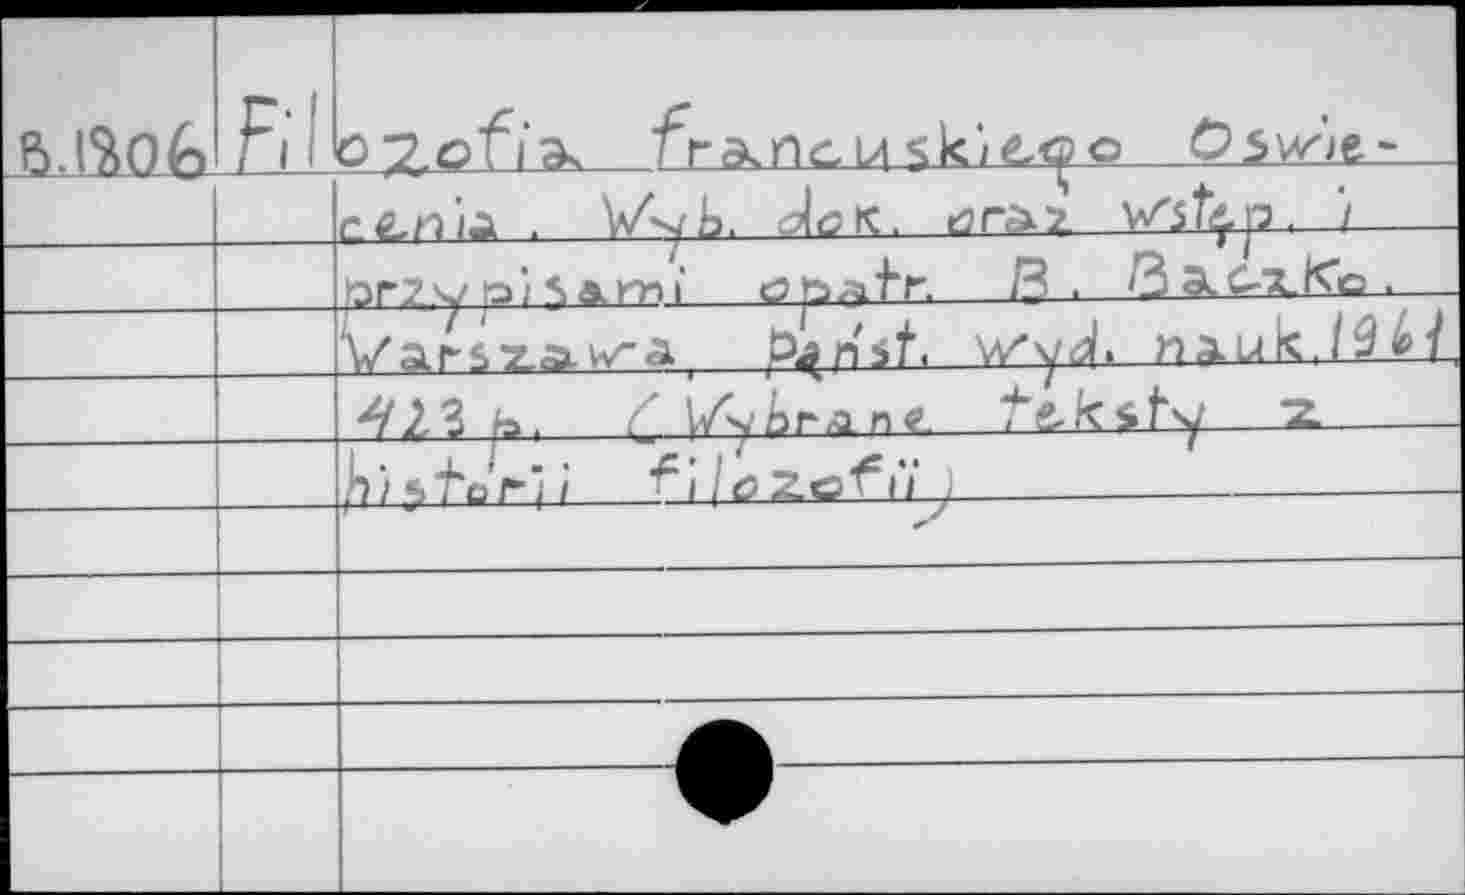 B.1806 Filozofia francuskiego Oswie-
cenia. Wyb. dok. oraz wstęp. i
przypisami opatr. B. Baczko.
Warszawa, Pąńst. wyd. nauk. 1961,
423 p. (Wybrane teksty z
historii filozofii)